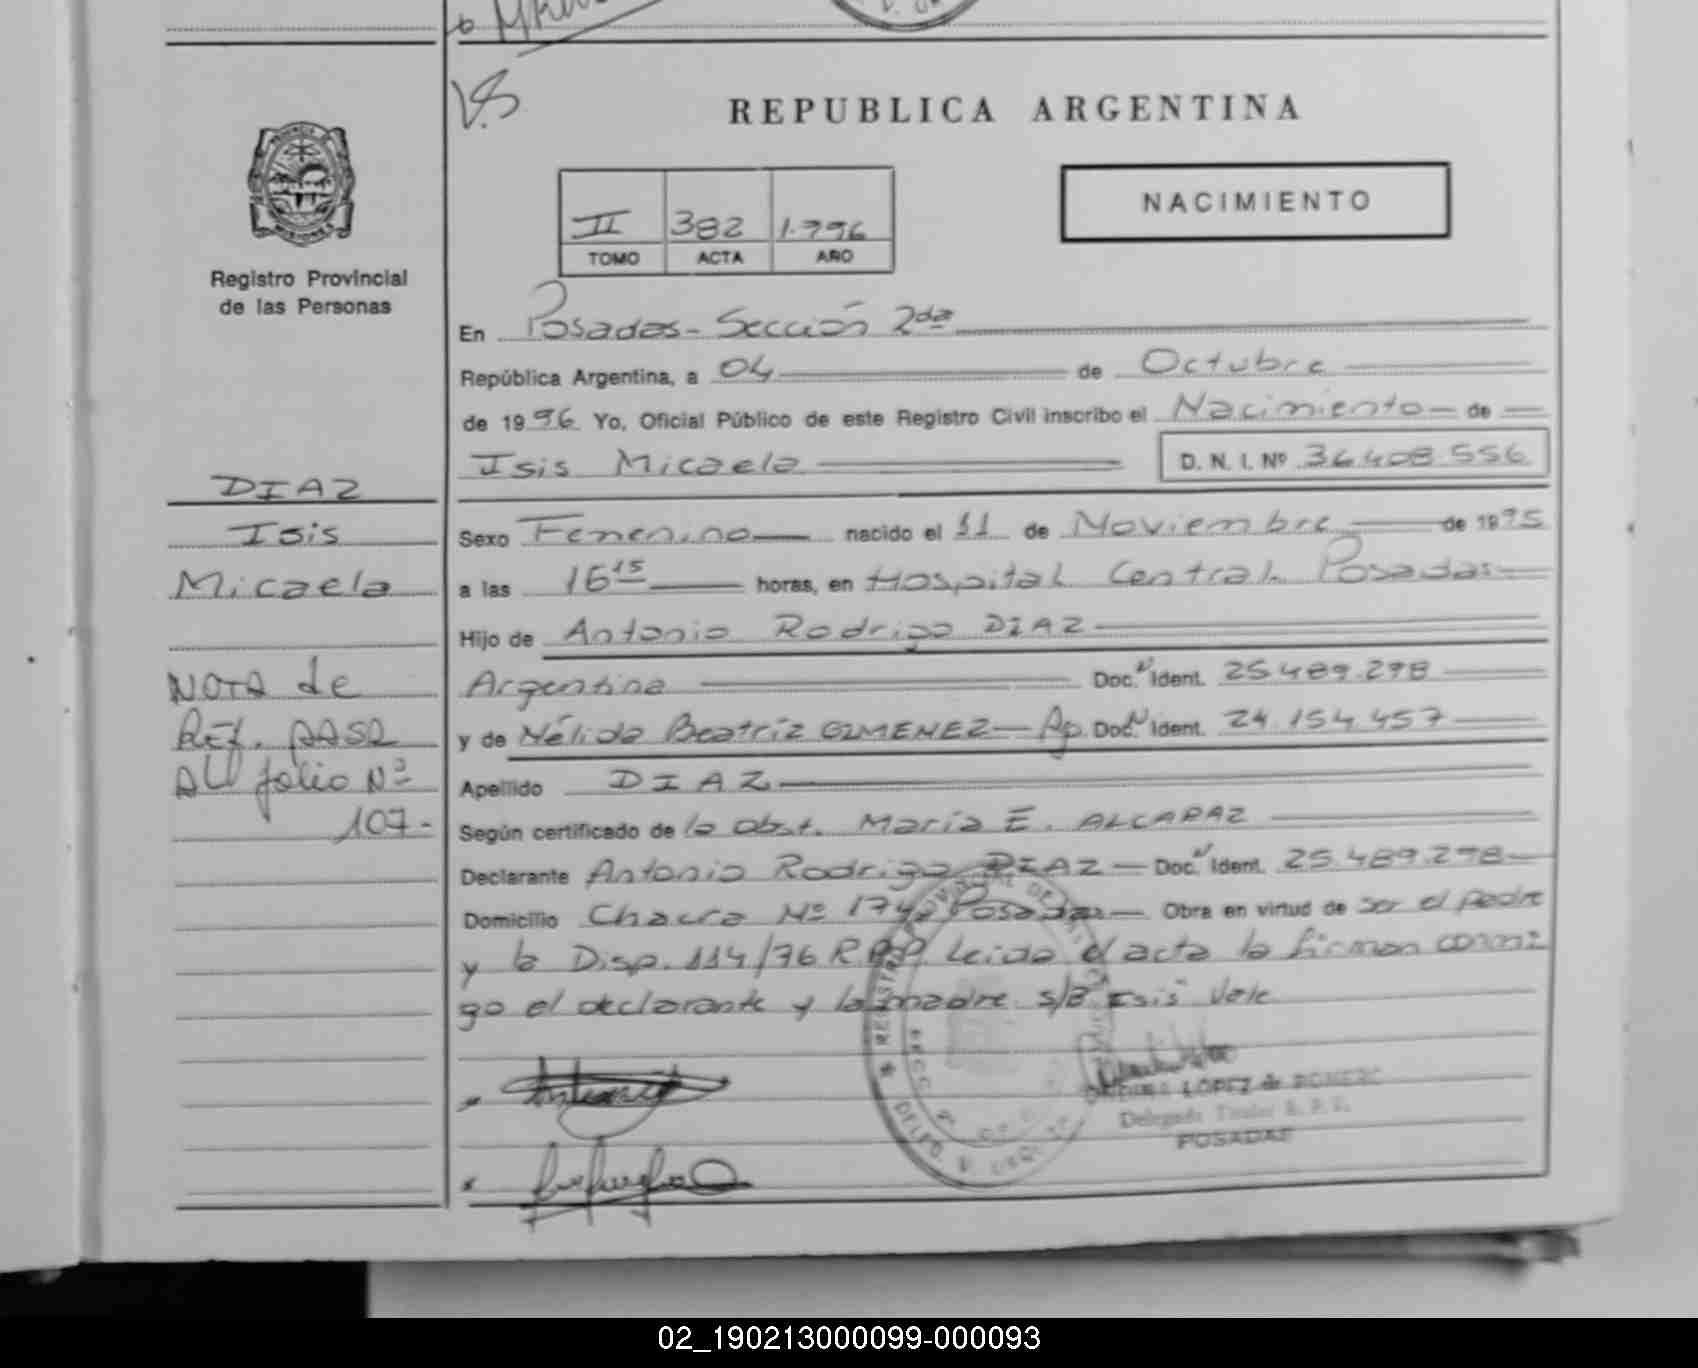 REPUBLICA ARGENTINA
NACIMIENTO
II 382 1.996
TOMO ACTA AÑO
Registro Provincial
de las Personas
En Posadas - Sección 2da
República Argentina, a 04 de Octubre
de 1996 Yo, Oficial Público de este Registro Civil inscribo el Nacimiento de
Isis Micaela D. N. I. Nº 36.408.556
DIAZ
Isis
Micaela
NOTA de
Ref. PASA
AU folio Nº
107-
Sexo Femenino nacido el 11 de Noviembre de 1995
a las 16 15 horas, en Hospital Central. Posadas
Hijo de Antonio Rodrigo DIAZ
Argentina Doc. N Ident. 25.489.298
y de Nélida Beatríz GIMENEZ - Ap. Doc. N Ident. 24.154.457
Apellido DIAZ
Según certificado de la obst. María E. ALCARAZ
Declarante Antonio Rodrigo DIAZ - Doc. N Ident. 25.489.298
Domicilio Chacra Nº 174, Posadas - Obra en virtud de ser el padre
y la Disp. 114/76 R.P.P. Leida el acta la firman conmi
go el declarante y la madre. s/B "Isis" Vale
LOPEZ de ROMERO
Delegada Titular R. P. P.
POSADAS
02_190213000099-000093